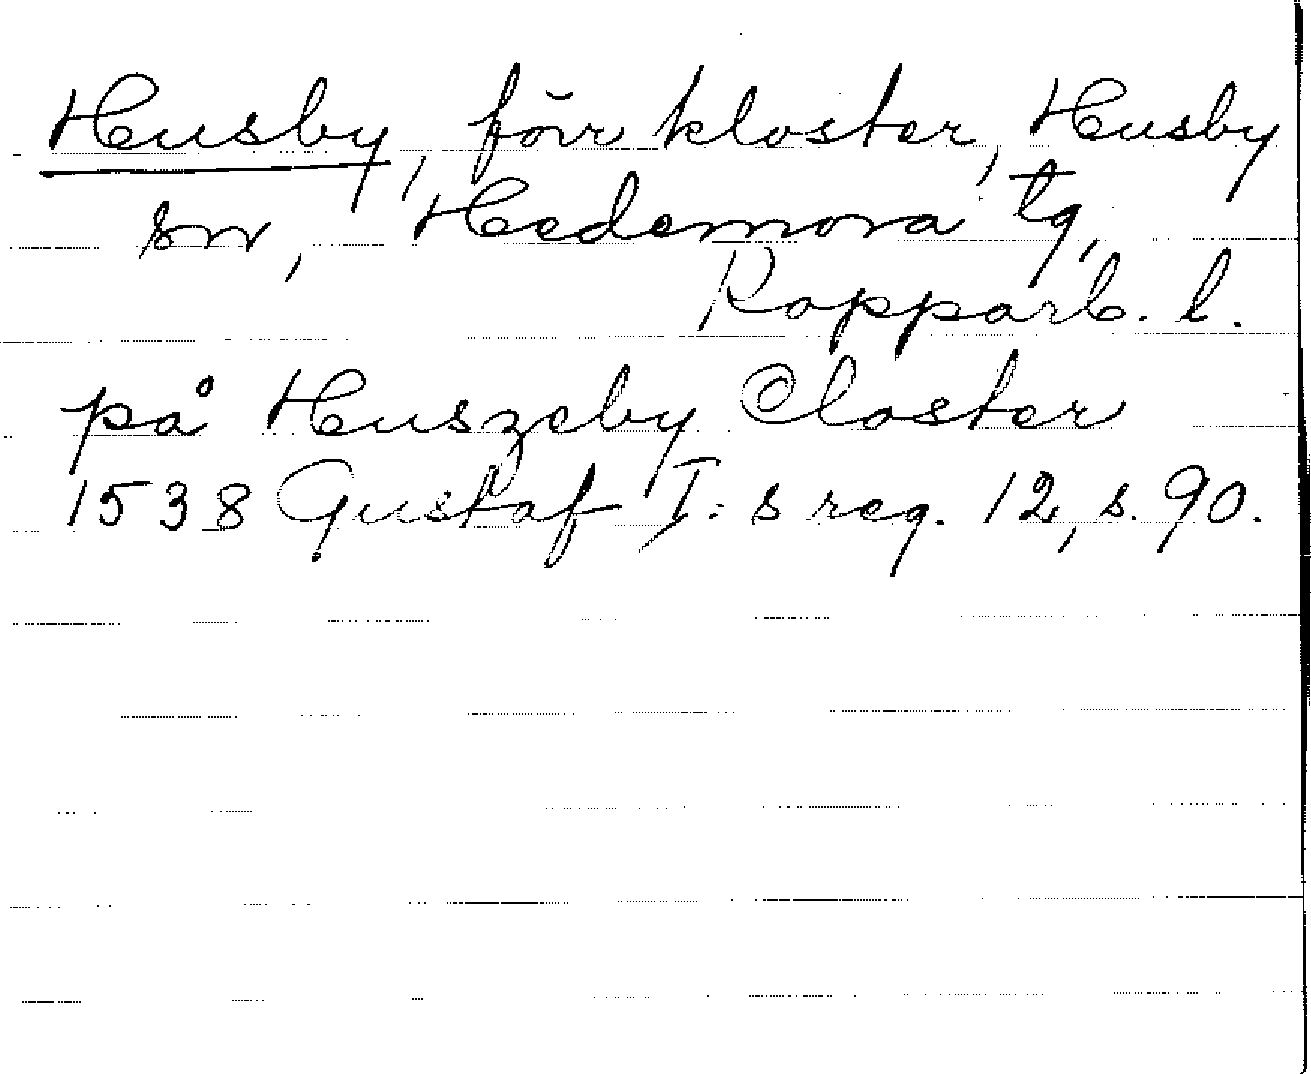 Husby, förr kloster, Husby
sn, Hedemora tg,
Kopparb. l.
på Huszeby Closter
1538 Gustaf I:s reg. 12, s. 90.